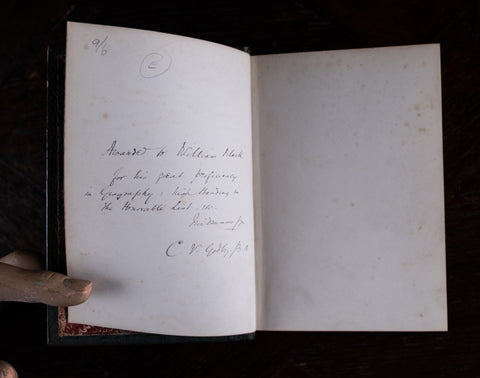 9/6
E
Awarded to William Black
for his great proficiency
in Geography; high standing in
the Honorable List; etc.
C. V.